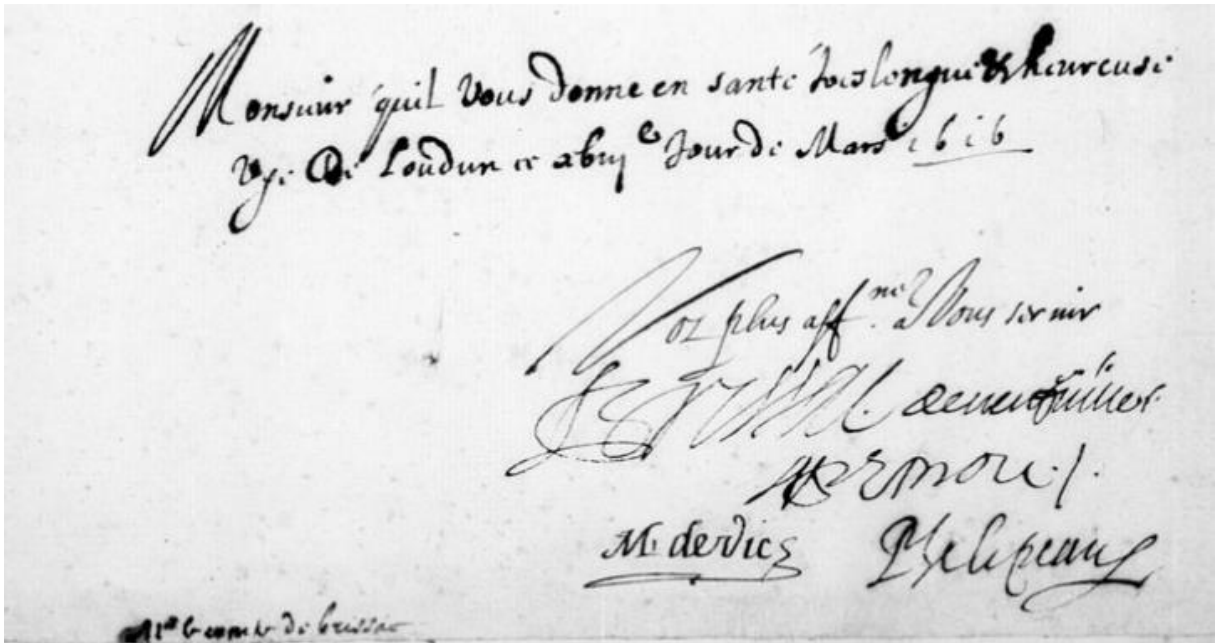 Monsieur quil vous donne en santé longue & heureuse
vye De Loudun ce xbiije Jour de Mars 1616
Voz plus affnez a vous servir
deneufville
M. de Vic Phelipeaux
Mr le comte de brissac